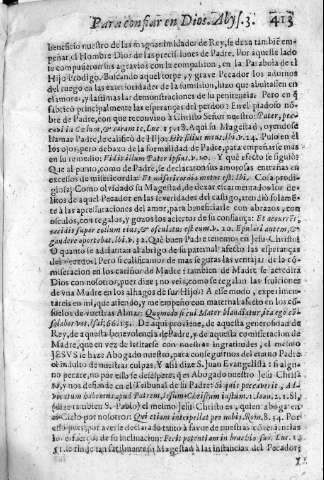 Para confiar en Dios. Abys. 3. 413
beneficio nuestro de las magnanimidades de Rey, se dexa tambiē em-
peñar el Hombre Dios de las precisiones de Padre. Por aquella lado
te compusieron sus agravios con la compassion, en la Parabola de el
Hijo Prodigo. Buscando aquel torpe, y grave Pecador los adornos
del ruego en las exterioridades de la sumission, hizo que
el amor, y lastimas las demonstraciones de su penitencia. Pero en
fixó principalmente las esperanças del perdon? En el piadoso nō-
bre de Padre, con que reconvino à Christo Señor nuestro: Pater, pec-
cavi in Cœlum, & coram te, Luc. 15. 18. Aqui su Magestad, oyendose
llamar Padre, le calificò de Hijo: Hic filius meus. ibi. v. 24. Puso en èl
los ojos, pero debaxo de la formalidad de Padre, para empeñarse mas
en su remedio: Vidit illum Pater ipsius. v. 20. Y què efecto se siguiò?
Que al punto, como de Padre, se declararon sus amorosas entrañas en
excessos de misericordia: Et misericordia motus est: ibi. Cosa prodi-
giosa! Como olvidado su Magestad, de dexar escarmentados los de-
litos de aquel Pecador en las severidades del castigo, atendiò solamē-
te à las apresuraciones del amor, para beneficiarle con abrazos, con
osculos, con regalos, y gozos los aciertos de su confiança: Et accurrēs,
cecidit super collum eius, & osculatus est eum. v. 20. Epulari autem, &
gaudere oportebat. ibi. v. 32. Què buen Padre tenemos en Jesu-Christo!
O quanto se adelantan al abrigo de su paternal afecto las esperanças
del perdon! Pero si calificamos de mas seguras las ventajas de la cō-
miseracion en los cariños de Madre; tambien de Madre se acredita
Dios con nosotros, pues dize: no veis, como se regalan las fruiciones
de una Madre en los alhagos de sus Hijos? A esse modo, experimen-
tareis en mi, que atiendo, y me empeño con maternal afecto en los cō-
suelos de vuestras Almas: Quomodo si cui Mater blandiatur, ita ego cō-
solabor vos. Isai. 66. 13. De aqui proviene, de aquella generosidad de
Rey, de aquesta benevolencia de Padre, y de aquella consideracion de
Madre, que en vez de irritarse con nuestras ingratitudes, el mesmo
JESVS se haze Abogado nuestro, para conseguirnos del eterno Padre
el indulto de nuestras culpas. Y assi dize S. Juan Evangelista: si algu-
no pecare, no por esso se desespere; que Abogado nuestro Jesu Christo
N, y nos defiende en el Tribunal de su Padre: si quis peccaverit, Ad-
vocatum habemus apud Patrem, Iesum-Christum iustum. 1. Joan. 2. 1. 81,
(dize tambien S. Pablo) el mesmo Jesu Christo es, quien aboga en
el Cielo por nosotros: Qui etiam interpellat pro nobis. Rom. 8. 34. Por
esso puesto por averse declarado tanto à favor de nuestras
los esfuerços de su inclinacion: Fecit potentiam in brachio suo. Luc. 1. 51
se rinde tan su Magestad à las instancias del Pecador;